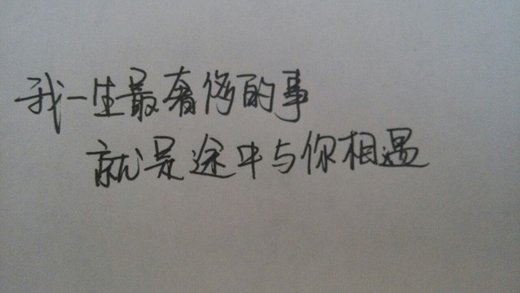 我一生最奢侈的事
就是途中与你相遇